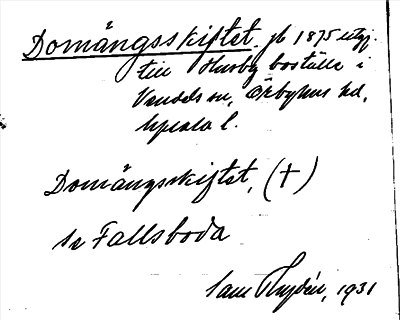 Domängsskiftet, jb 1875 utgj.
till Husby boställe i
Vendels sn, Örbyhus hd,
Upsala l.
Domängsskiftet, (†)
se Fallsboda
Sam Rydén, 1931